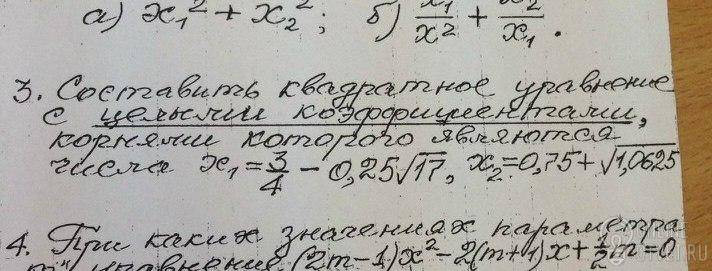 а) x₁² + x₂² ; б) x₁/x² + x₂/x₁ .
3. Составить квадратное уравнение
с целыми коэффициентами,
корнями которого являются
числа x₁ = 3/4 − 0,25√17, x₂ = 0,75 + √1,0625
4. При каких значениях параметра
"m" уравнение (2m−1)x² − 2(m+1)x + 1/2 m = 0